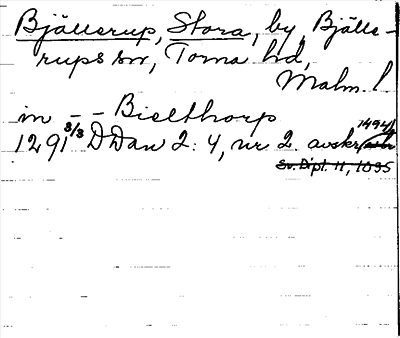 Bjällerup, Stora, by, Bjälle-
rups sn, Torna hd,
Malm. l
in - - Bielthorp
1291 3/3 DDan 2: 4, nr 2. avskr. 1494
Sv. Dipl. 11, 1035